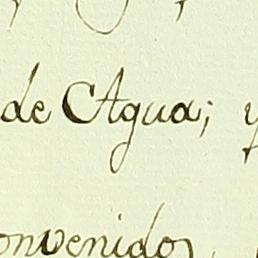 de Agua; y
onvenidos,